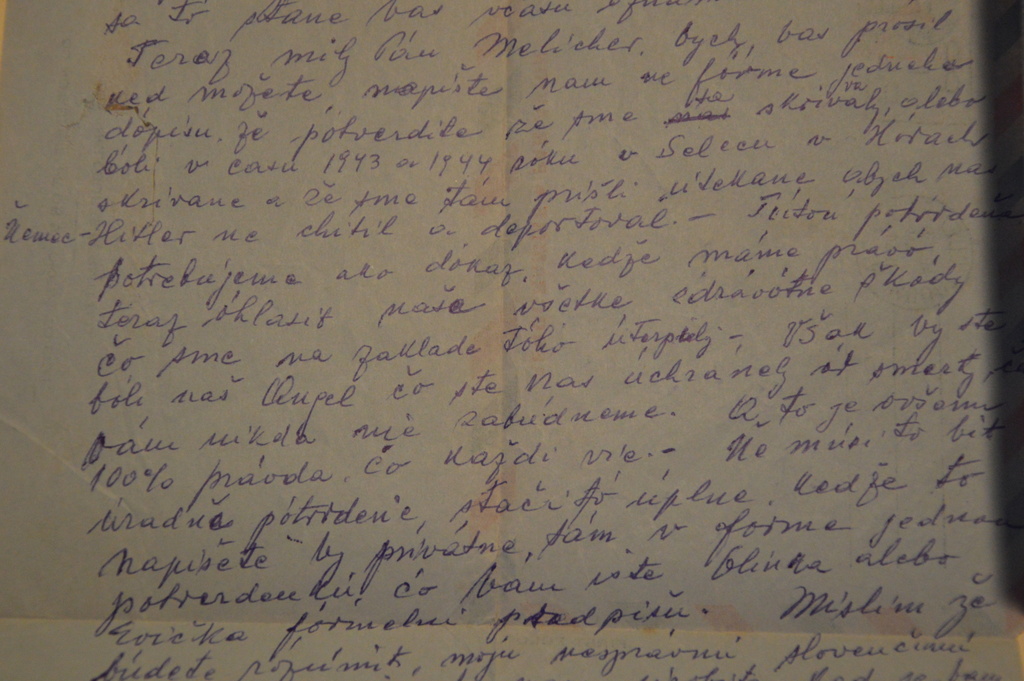 sa to stane vas včasu
Teraz milý Pán Melicher, bych, vas prosil
ked môžete, napište nam ve forme jedneho
dopisu, že potverdite že sme sa skrivali, alebo
boli v času 1943 a 1944 roku v Selecu v Horach
skrivane a že sme tam prišli utekane abych nas
Nemec-Hitler ne chitil a deportoval. - Tuton potvrdenie
potrebujeme ako dokaz, kedže máme právo
teraz ohlasit naše všetke zdravotne škody
čo sme na zaklade toho uterpeli - Však vy ste
boli naš Angel čo ste nas uchraneli od smerti, čo
vám nikda nie zabudneme. A to je ovšem
100% pravda, čo každi vie. - Ne musi to bit
uradne potvrdenie, stači to uplne, kedže to
napišete vy privátne, tam v forme jednou
potverdenku, čo Vam iste Olinka alebo
Evička formelni predpišu. Mislim že
budete rozumit, moju nespravnu slovenčinu